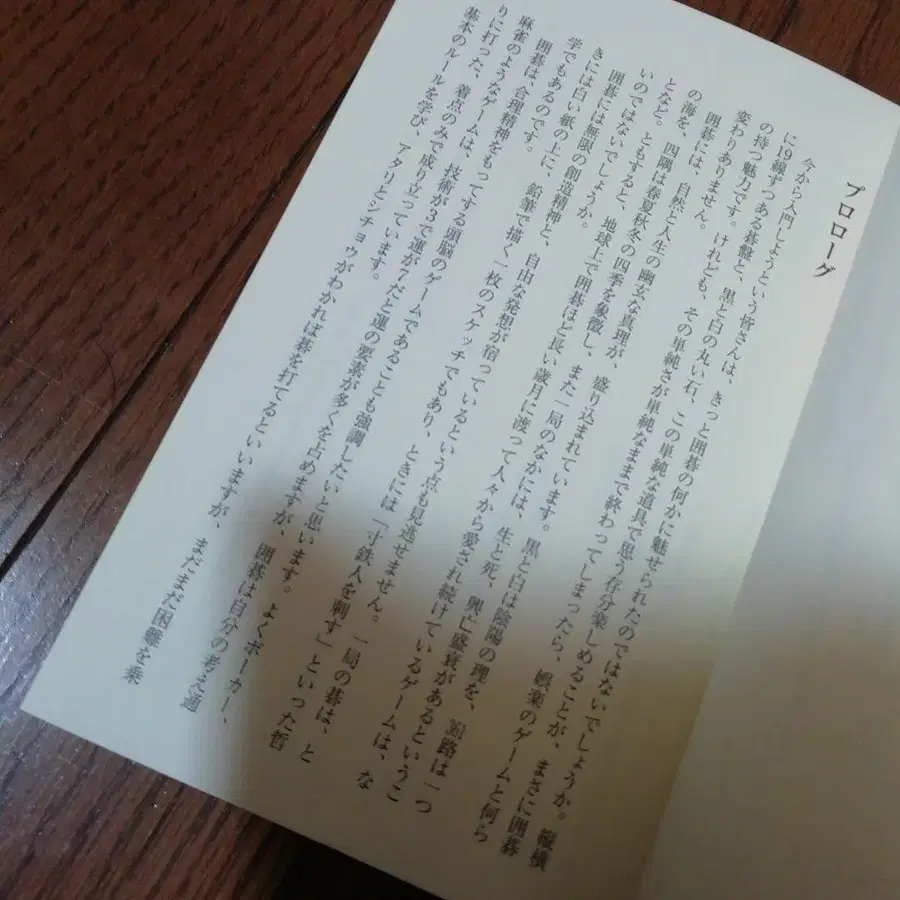 プロローグ
今から入門しようという皆さんは、きっと囲碁の何かに魅せられたのではないでしょうか。縦横
に19線ずつある碁盤と、黒と白の丸い石、この単純な道具で思う存分楽しめることが、まさに囲碁
の持つ魅力です。けれども、その単純さが単純なままで終わってしまったら、娯楽のゲームと何ら
変わりありません。
囲碁には、自然と人生の幽玄な真理が、盛り込まれています。黒と白は陰陽の理を、361路は一つ
の海を、四隅は春夏秋冬の四季を象徴し、また一局のなかには、生と死、興亡盛衰があるというこ
となど。ともすると、地球上で囲碁ほど長い歳月に渡って人々から愛され続けているゲームは、な
いのではないでしょうか。
囲碁には無限の創造精神と、自由な発想が宿っているという点も見逃せません。一局の碁は、と
きには白い紙の上に、鉛筆で描く一枚のスケッチでもあり、ときには「寸鉄人を刺す」といった哲
学でもあるのです。
囲碁は、合理精神をもってする頭脳のゲームであることも強調したいと思います。よくポーカー、
麻雀のようなゲームは、技術が3で運が7だと運の要素が多くを占めますが、囲碁は自分の考え通
りに打った、着点のみで成り立っています。
基本のルールを学び、アタリとシチョウがわかれば碁を打てるといいますが、まだまだ困難を乗